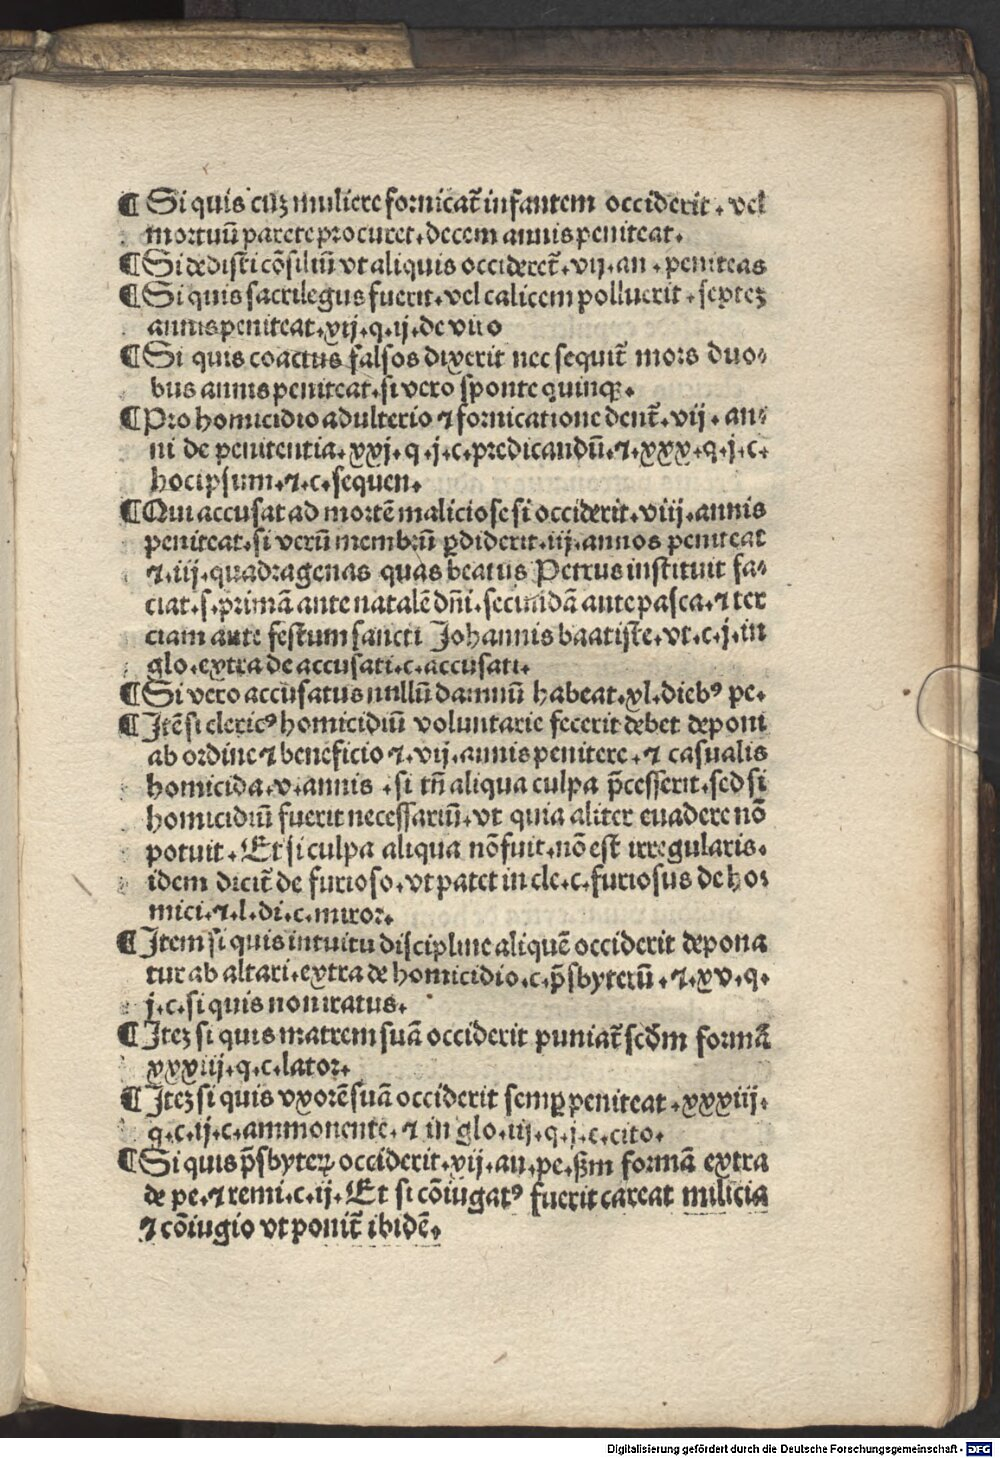 ¶ Si quis cuꝫ muliere fornicat̄ infantem occiderit . vel
mortuū parere procuret . decem annis peniteat .
¶ Si dedisti cōsiliū vt aliquis occideret̄ . vij . an . peniteas
¶ Si quis sacrilegus fuerit . vel calicem polluerit . septeꝫ
annis peniteat . xij . q . ij . de viro
¶ Si quis coactus falsos dixerit nec sequit̄ mors duo⸗
bus annis peniteat . si vero sponte quinqꝫ .
¶ Pro homicidio adulterio ⁊ fornicatione dent̄ . vij . an⸗
ni de penitentia . xxj . q . j . c . predicandū . ⁊ . xxx . q . j . c .
hocipsum . ⁊ . c . sequen .
¶ Qui accusat ad mortē maliciose si occiderit . viij . annis
peniteat . si verū membrū ꝑdiderit . iij . annos peniteat
⁊ . iij . quadragenas quas beatus Petrus instituit fa⸗
ciat . s . primā ante natalē dn̄i . secundā ante pasca . ⁊ ter
ciam ante festum sancti Johannis baatiste . vt . c . j . in
glo . extra de accusati . c . accusati .
¶ Si vero accusatus nullū damnū habeat . xl . diebꝰ pe .
¶ Jtē si clericꝰ homicidiū voluntarie fecerit debet deponi
ab ordine ⁊ beneficio ⁊ . vij . annis penitere . ⁊ casualis
homicida . v . annis . si tn̄ aliqua culpa p̄cesserit . sed si
homicidiū fuerit necessariū . vt quia aliter euadere nō
potuit . Et si culpa aliqua nō fuit . nō est irregularis .
idem dicit̄ de furioso . vt patet in cle . c . furiosus de ho⸗
mici . ⁊ . l . di . c . miror .
¶ Jtem si quis intuitu discipline aliquē occiderit depona
tur ab altari . extra de homicidio . c . p̄sbyterū . ⁊ . xv . q .
j . c . si quis non iratus .
¶ Jteꝫ si quis matrem suā occiderit puniat̄ scd̄m formā
xxxiij . q . c . lator .
¶ Jteꝫ si quis vxorē suā occiderit semꝑ peniteat . xxxiij .
q . c . ij . c . ammonente . ⁊ in glo . iij . q . j . c . cito .
¶ Si quis p̄sbyterꝫ occiderit . vij . an . pe . ẜm formā extra
de pe . ⁊ remi . c . ij . Et si cōiugatꝰ fuerit careat milicia
⁊ cōiugio vt ponit̄ ibidē .
Digitalisierung gefördert durch die Deutsche Forschungsgemeinschaft - DFG